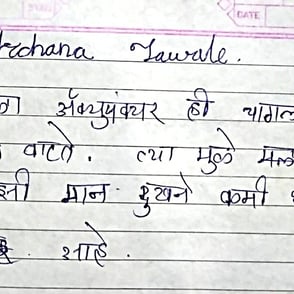 Archana Tawale.
अ‍ॅक्युपंक्चर ही चांगल
वाटते. त्या मुळे मल
मान दुखने कमी
आहे.